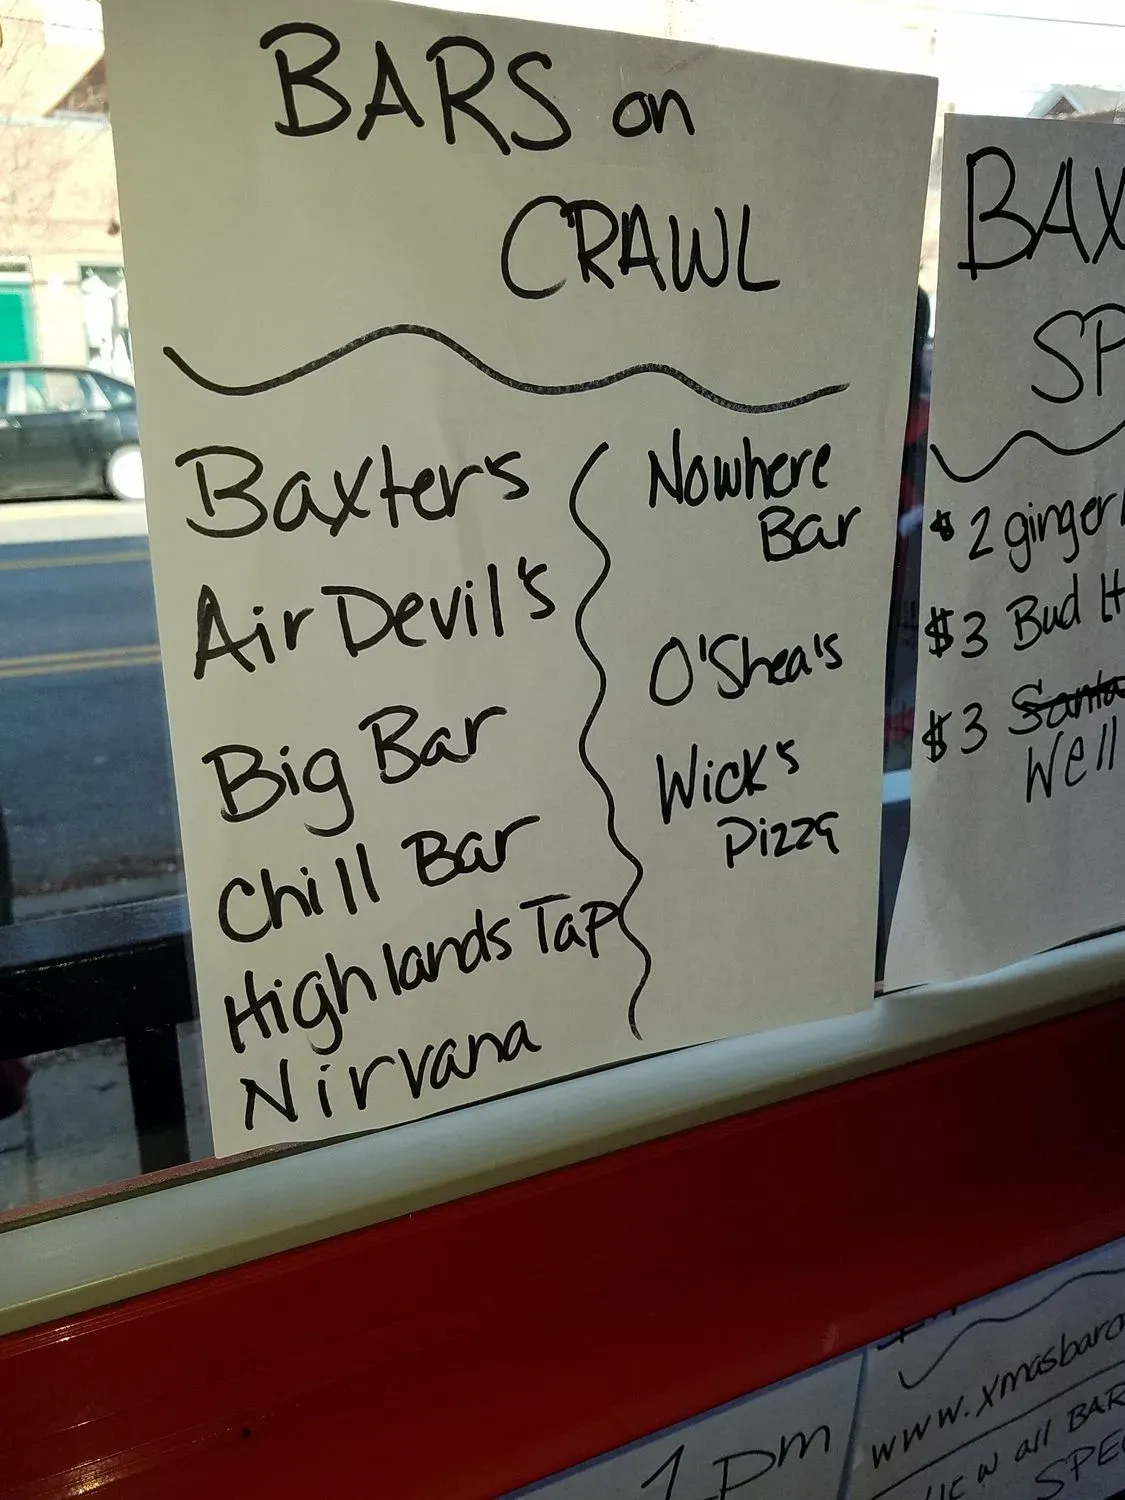 BARS on
CRAWL
Baxter's
Air Devil's
Big Bar
Chill Bar
Highlands Tap
Nirvana
Nowhere
Bar
O'Shea's
Wick's
Pizza
BAX
SP
$2 ginger
$3 Bud
$3 Santa
Well
1pm
www.xmasbarc
w all BAR
SPEC